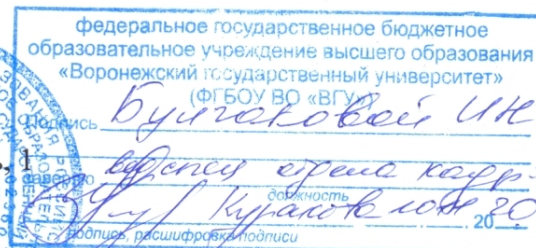 федеральное государственное бюджетное
образовательное учреждение высшего образования
«Воронежский государственный университет»
(ФГБОУ ВО «ВГУ»)
Подпись Булгаковой И Н
заверяю вед. спец отдела кадр
должность
20
подпись, расшифровка подписи